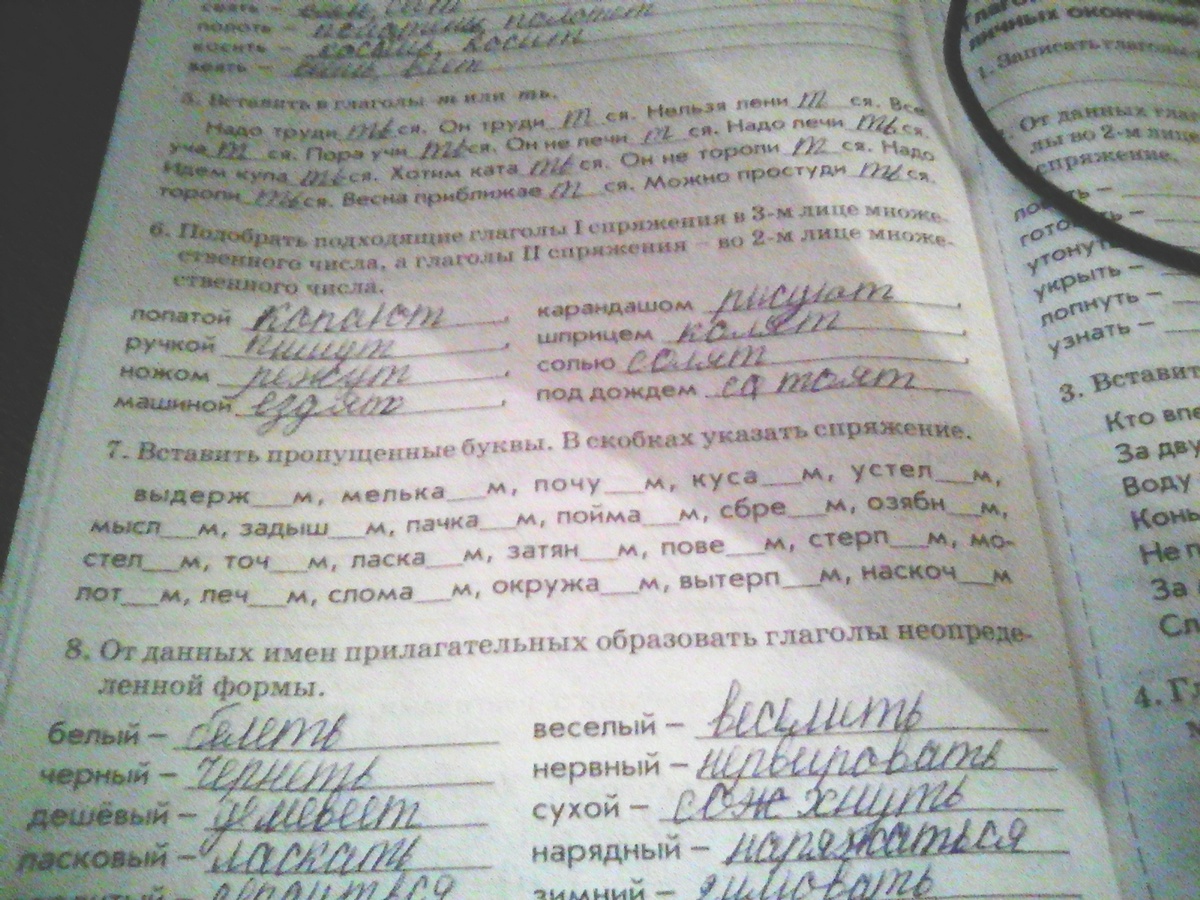 сеять –
полоть – полотишь, полотет
косить – косишь, косит
веять –
5. Вставить в глаголы -т или -ть.
Надо труди ть ся. Он труди т ся. Нельзя лени т ся. Все
уча т ся. Пора учи ть ся. Он не печи т ся. Надо печи ть ся.
Идем купа ть ся. Хотим ката ть ся. Он не торопи т ся. Надо
торопи ть ся. Весна приближае т ся. Можно простуди ть ся.
6. Подобрать подходящие глаголы I спряжения в 3-м лице множе-
ственного числа, а глаголы II спряжения – во 2-м лице множе-
ственного числа.
лопатой копают, карандашом рисуют,
ручкой пишут, шприцем колят,
ножом режут, солью солят,
машиной ездят, под дождем
7. Вставить пропущенные буквы. В скобках указать спряжение.
выдерж___м, мелька___м, почу___м, куса___м, устел___м,
мысл___м, задыш___м, пачка___м, пойма___м, сбре___м, озябн___м,
стел___м, точ___м, ласка___м, затян___м, пове___м, стерп___м, мо-
лот___м, леч___м, слома___м, окружа___м, вытерп___м, наскоч___м
8. От данных имен прилагательных образовать глаголы неопреде-
ленной формы.
белый – белеть веселый – веселить
черный – чернеть нервный – нервировать
дешёвый – дешевеет сухой –
ласковый – ласкать нарядный – наряжаться
зимний – зимовать
личных окончаний
1. Записать глаголы
От данных глаго
лы во 2-м лице
спряжение.
утонуть –
укрыть –
лопнуть –
узнать –
3. Вставить
Кто впе
За дву
Воду
Конь
Не п
За
Сл
4. Г